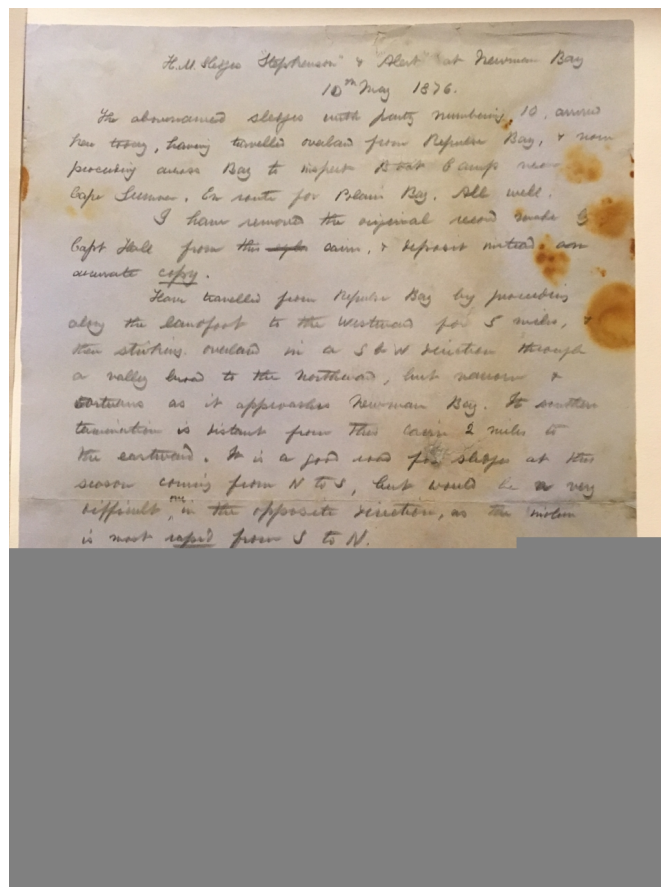 H.M. Sledges "Stephenson" & "Alert" at Newman Bay
10th May 1876.
The abovenamed sledges with party numbering, 10, arrived
here today, having travelled overland from Repulse Bay, & now
proceeding across Bay to inspect Boat Camp near
Cape Sumner. En route for Polaris Bay. All well.
I have removed the original record made by
Capt Hall from this cairn, & deposit instead an
accurate copy.
Have travelled from Repulse Bay by proceeding
along the landfoot to the Westward for 5 miles, &
then striking overland in a S b W direction through
a valley broad to the Northward, but narrow &
tortuous as it approaches Newman Bay. Its southern
termination is distant from this cairn 2 miles to
the eastward. It is a good road for sledges at this
season coming from N to S, but would be a very
difficult one in the opposite direction, as the
is most rapid from S to N.